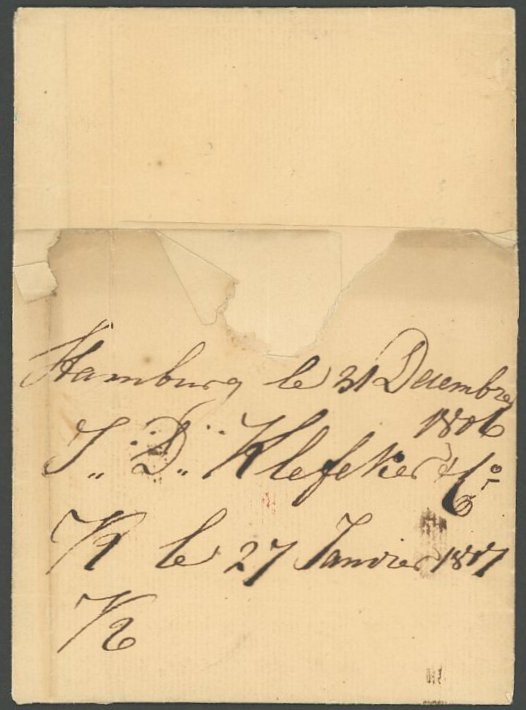 Hamburg le 31 Decembre
1806
J„ D„ Klefeker & Co
R le 27 Janvier 1807
R